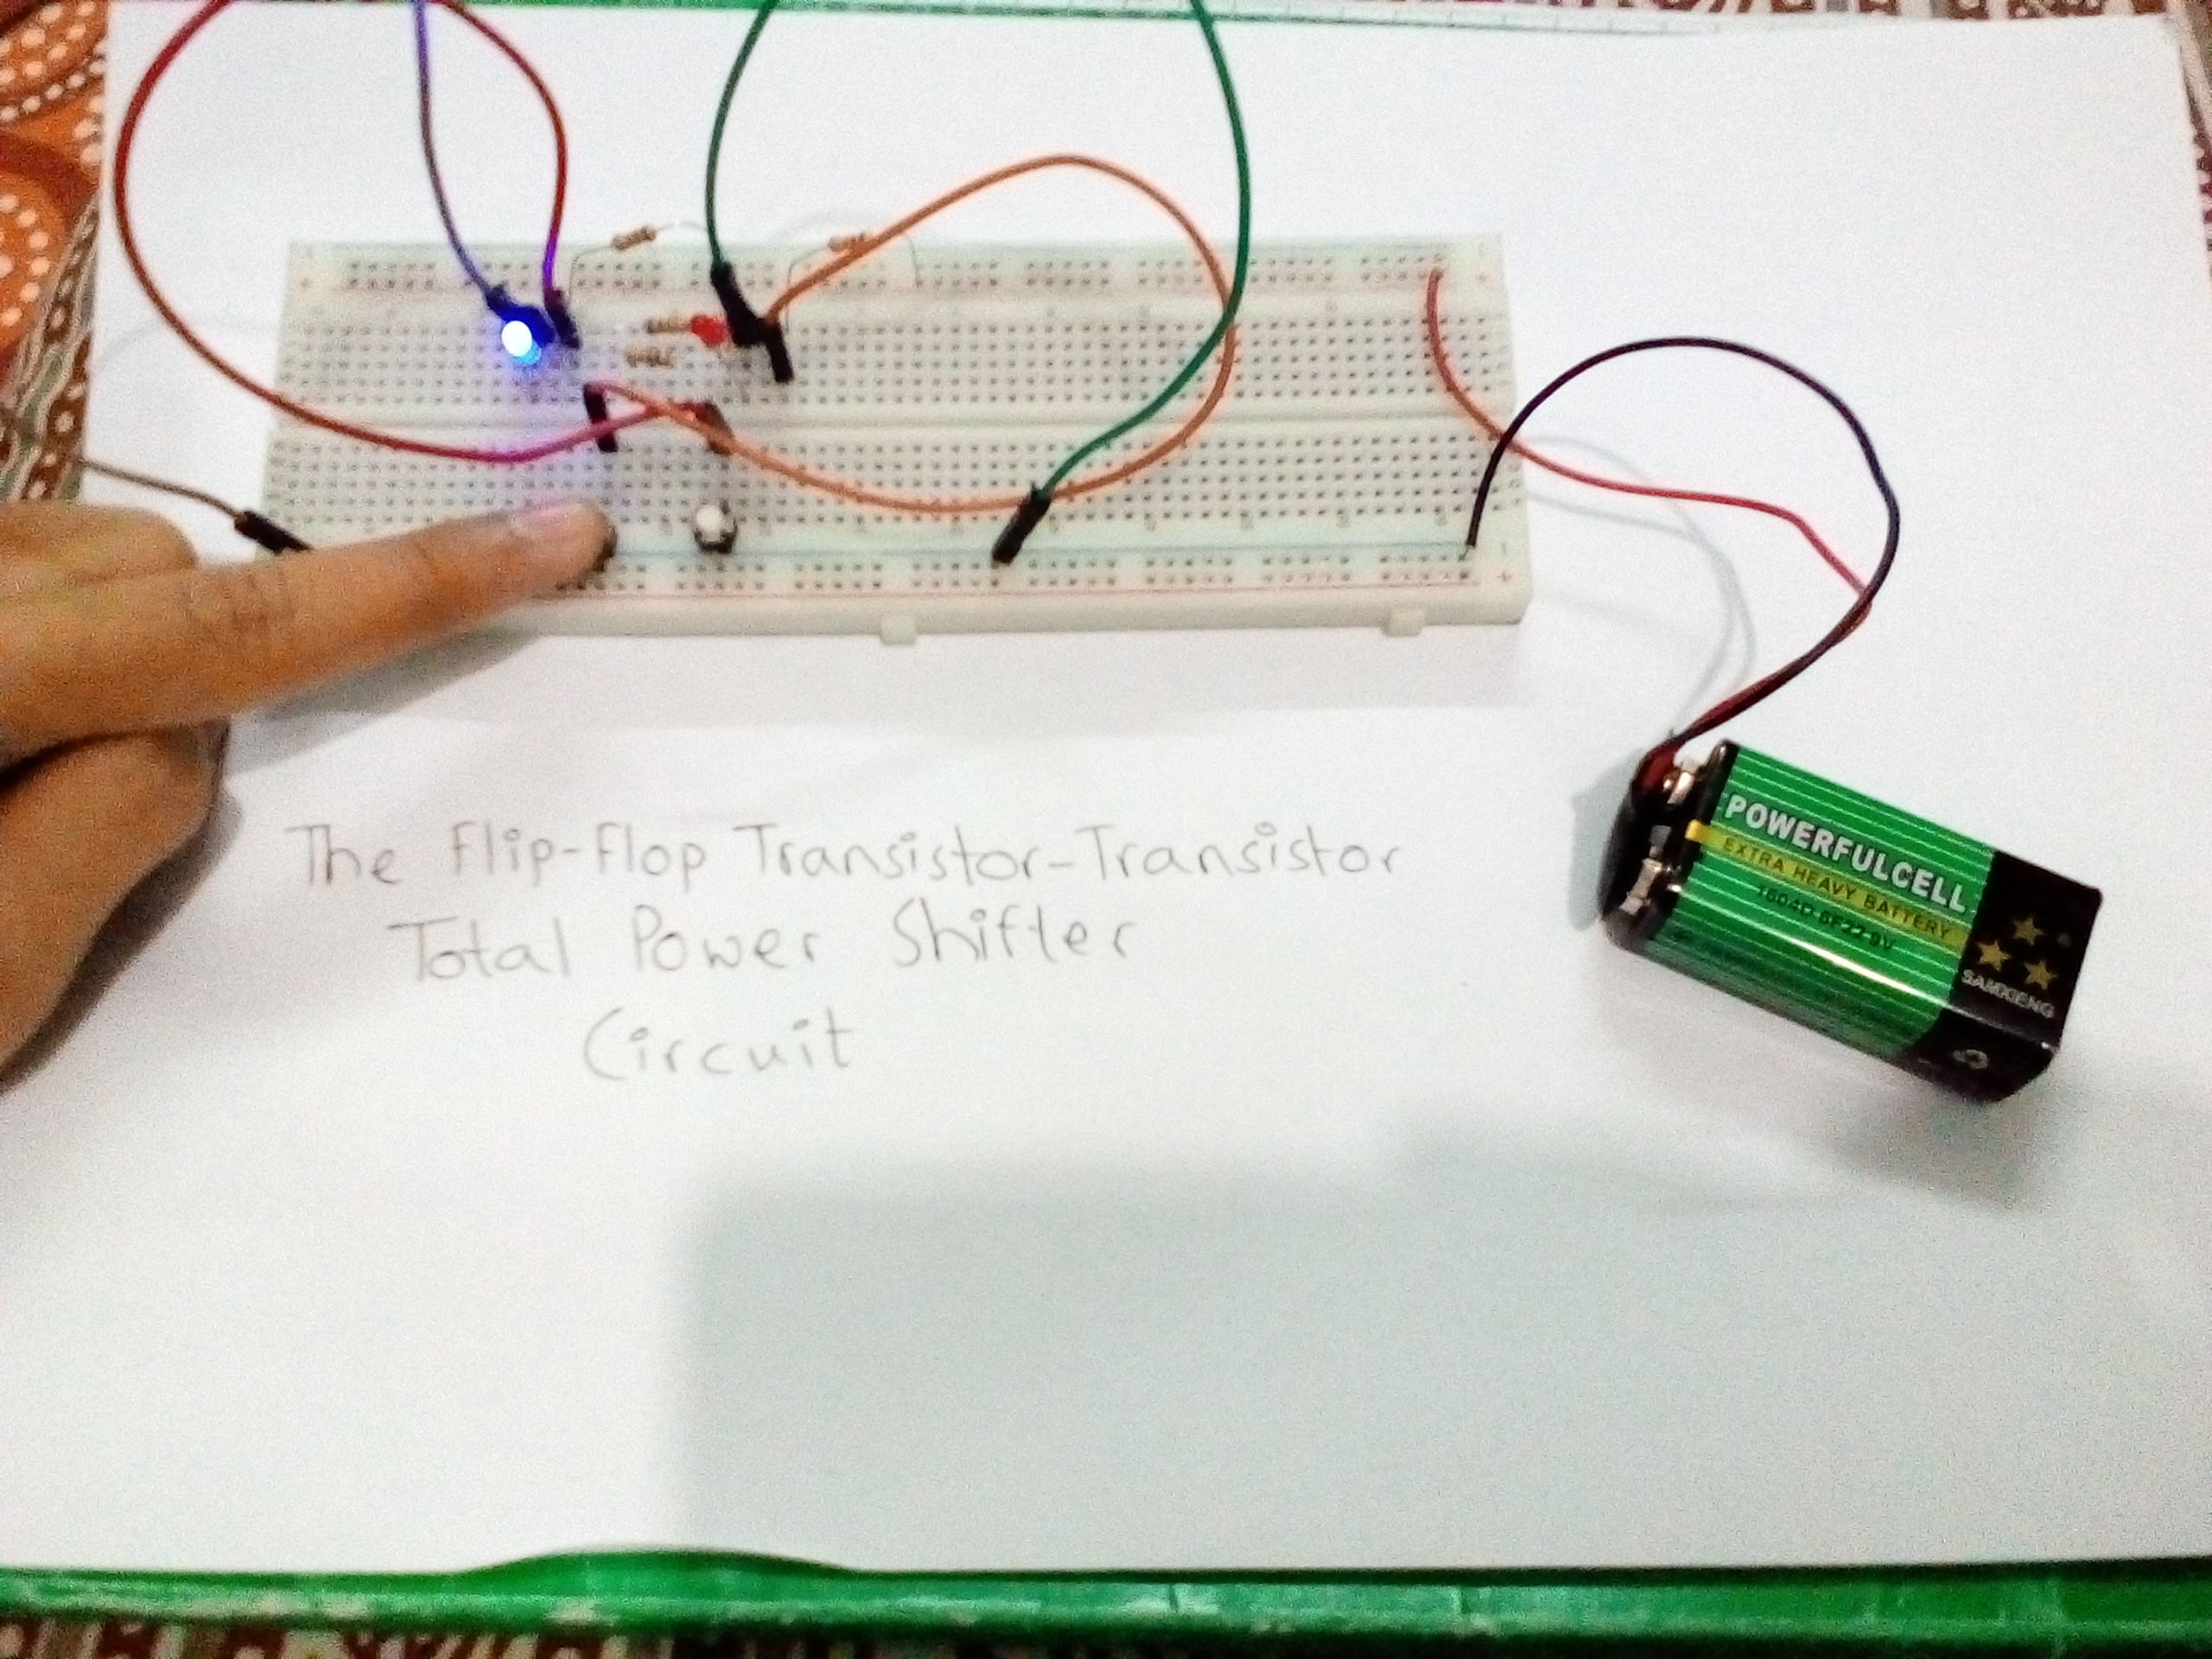 POWERFULCELL
EXTRA HEAVY BATTERY
1604D 6F22 9V
SAMXIENG
The Flip-Flop Transistor-Transistor
Total Power Shifter
Circuit